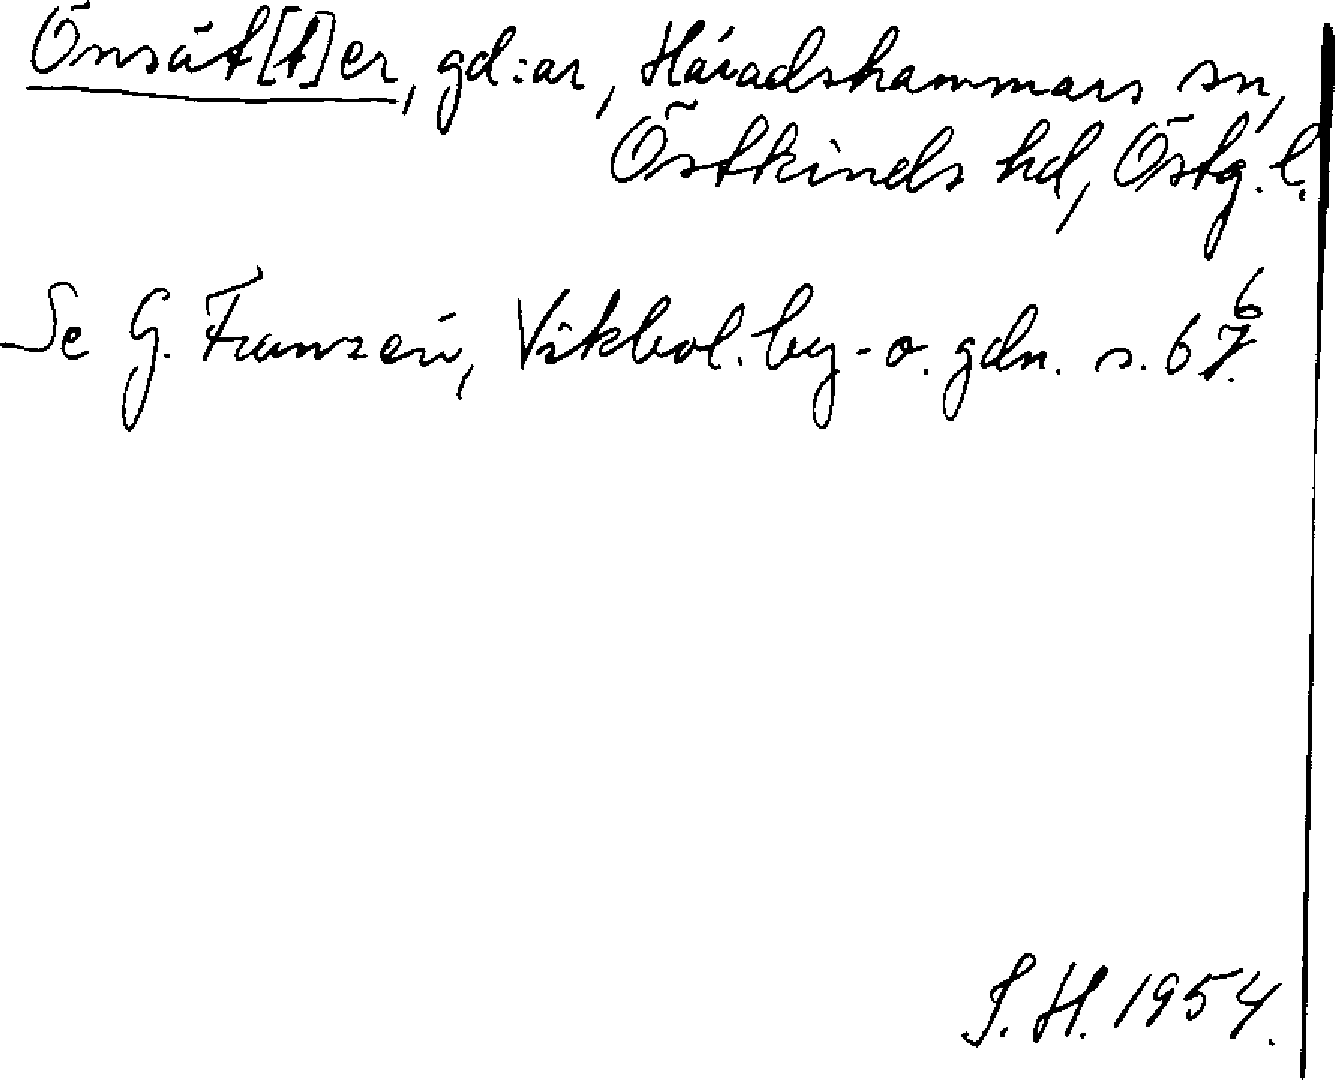 Önsät[t]er, gd:ar, Häradshammars sn,
Östkinds hd, Östg. l.
Se G. Franzén, Vikbol. by- o. gdn. s. 67⁶.
S. H. 1954.